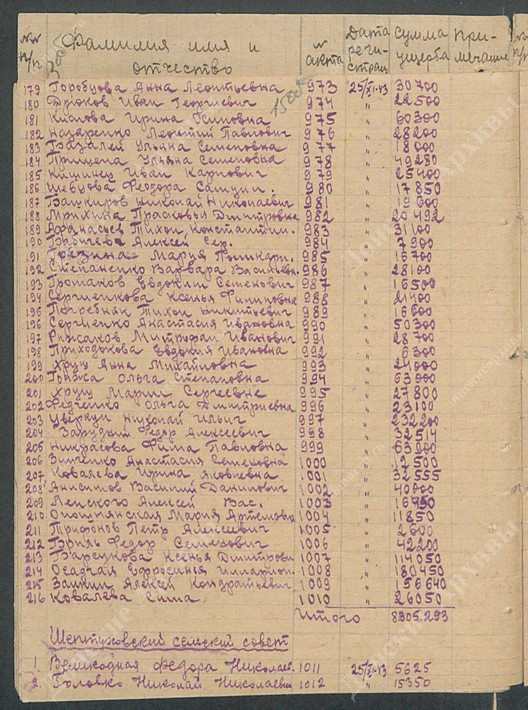 №№ п/п Фамилия имя и отчество № акта Дата регистрац сумма ущерба Примечание
179 Горобцова Анна Леонтьевна 973 25/XI-43 30700
180 Иван Георгиевич 974 " 22500
181 Кислова Ирина Осиповна 975 " 60300
182 Назаренко Леонтий Павлович 976 " 28200
183 Ульяна Семеновна 977 " 8000
184 Прищепа Ульяна Семеновна 978 " 49280
185 Кишинец Иван Карпович 979 " 25400
186 Шевцова Феодора 980 " 17850
187 Башкиров Николай Николаевич 981 " 19600
188 Мрихина Прасковья Дмитровна 982 " 20492
189 Афанасьев Тихон Константин. 983 " 31100
190 Алексей Сер. 984 " 7900
191 Мария Поликарп. 985 " 16700
192 Степаненко Варвара Васильевн. 986 " 28100
193 Громаков Евдоким Семенович 987 " 16500
194 Сергиенкова Ксенья 988 " 21400
195 Погребняк Тихон Никитьевич 989 " 16600
196 Сергиенко Анастасия Ивановна 990 " 50300
197 Митрофан Иванович 991 " 28700
198 Приходькова Евдокия Ивановна 992 " 6300
199 Хрущ Анна Михайловна 993 " 24000
200 Ольга Степановна 994 " 63000
201 Хрущ Мария Сергеевна 995 " 27800
202 Федченко Ольга Дмитриевна 996 " 23100
203 Цверкун Николай Ильич 997 " 232200
204 Зарудний Федор Алексеевич 998 " 32514
205 Некрасова Фима Павловна 999 " 63900
206 Зинченко Анастасия Семеновна 1000 " 12500
207 Ковалева Ирина Яковлевна 1001 " 32555
208 Анисимов Василий Данилович 1002 " 40000
209 Ленского Алексей Вас. 1003 " 16950
210 Мария Артемовна 1004 " 11850
211 Трофонов Петр Алексеевич 1005 " 2600
212 Федор Семенович 1006 " 42200
213 Барсукова Ксенья Дмитровн 1007 " 114050
214 Осадчая Ефросинья 1008 " 180450
215 Алексей Кондратьевич 1009 " 56640
216 Ковалева 1010 " 26050
Итого 8305.293
Шептуховский сельский совет
1. Великодная Федора Николаев. 1011 25/XI-43 5625
2. Головко Николай Николаевич 1012 " 15350